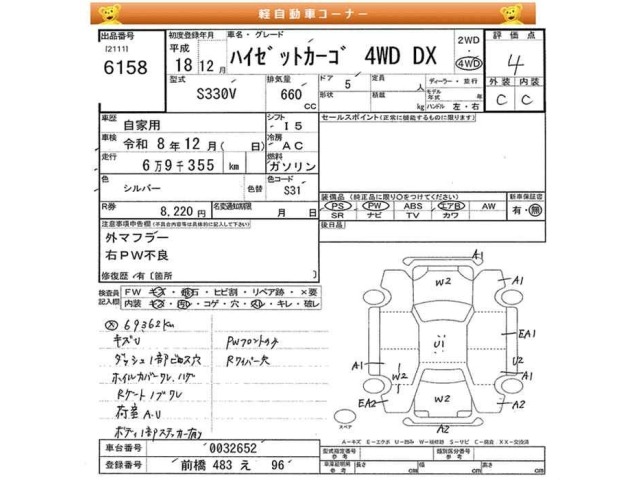 軽自動車コーナー
出品番号
[2111]
6158
初度登録年月
平成
18 12 月
車名・グレード
ハイゼットカーゴ 4WD DX
2WD
4WD
評価点
4
型式
S330V
排気量
660
CC
ドア 5
形状
定員
人
積載
kg
ディーラー・並行
モデル
年式
年
ハンドル 左・右
外装 内装
C C
車歴
自家用
シフト
I5
車検
令和 8年 12月( 日)
冷房
AC
走行
6万9千355 km
燃料
ガソリン
色
シルバー
色替
色コード
S31
R券
8,220円
名変通知期限
月 日
セールスポイント(正常に機能するものに限ります)
装備品(純正品に限り○をつけてください)
PS PW ABS エアB AW
SR ナビ TV カワ
新車保証書
有・無
後日品
注意事項申告欄(不具合内容等は具体的に記入して下さい)
外マフラー
右PW不良
修復歴/有〔箇所
検査員
記入欄
FW キズ・飛石・ヒビ割・リペア跡・×要
内装 キズ・汚レ・コゲ・穴・スレ・キレ・破レ
69362km
キズU
PWフロントのみ
ダッシュ1部ビス穴
Rワイパー欠
ホイルカバーワレ、ハゲ
Rゲートノブワレ
荷室A.U
ボディ1部ステッカー有り
A1
W2
A1
EA1
U1
U2
A1
W2
A1
EA2
W2
A2
A2
スペア
A=キズ E=エクボ U=凹み W=補修跡 S=サビ C=腐食 XX=交換済
車台番号
0032652
登録番号
前橋 483 え 96
型式指定番号
参考
類別区分番号
参考
車庫証明用
参考
長さ
cm
幅
cm
高さ
cm